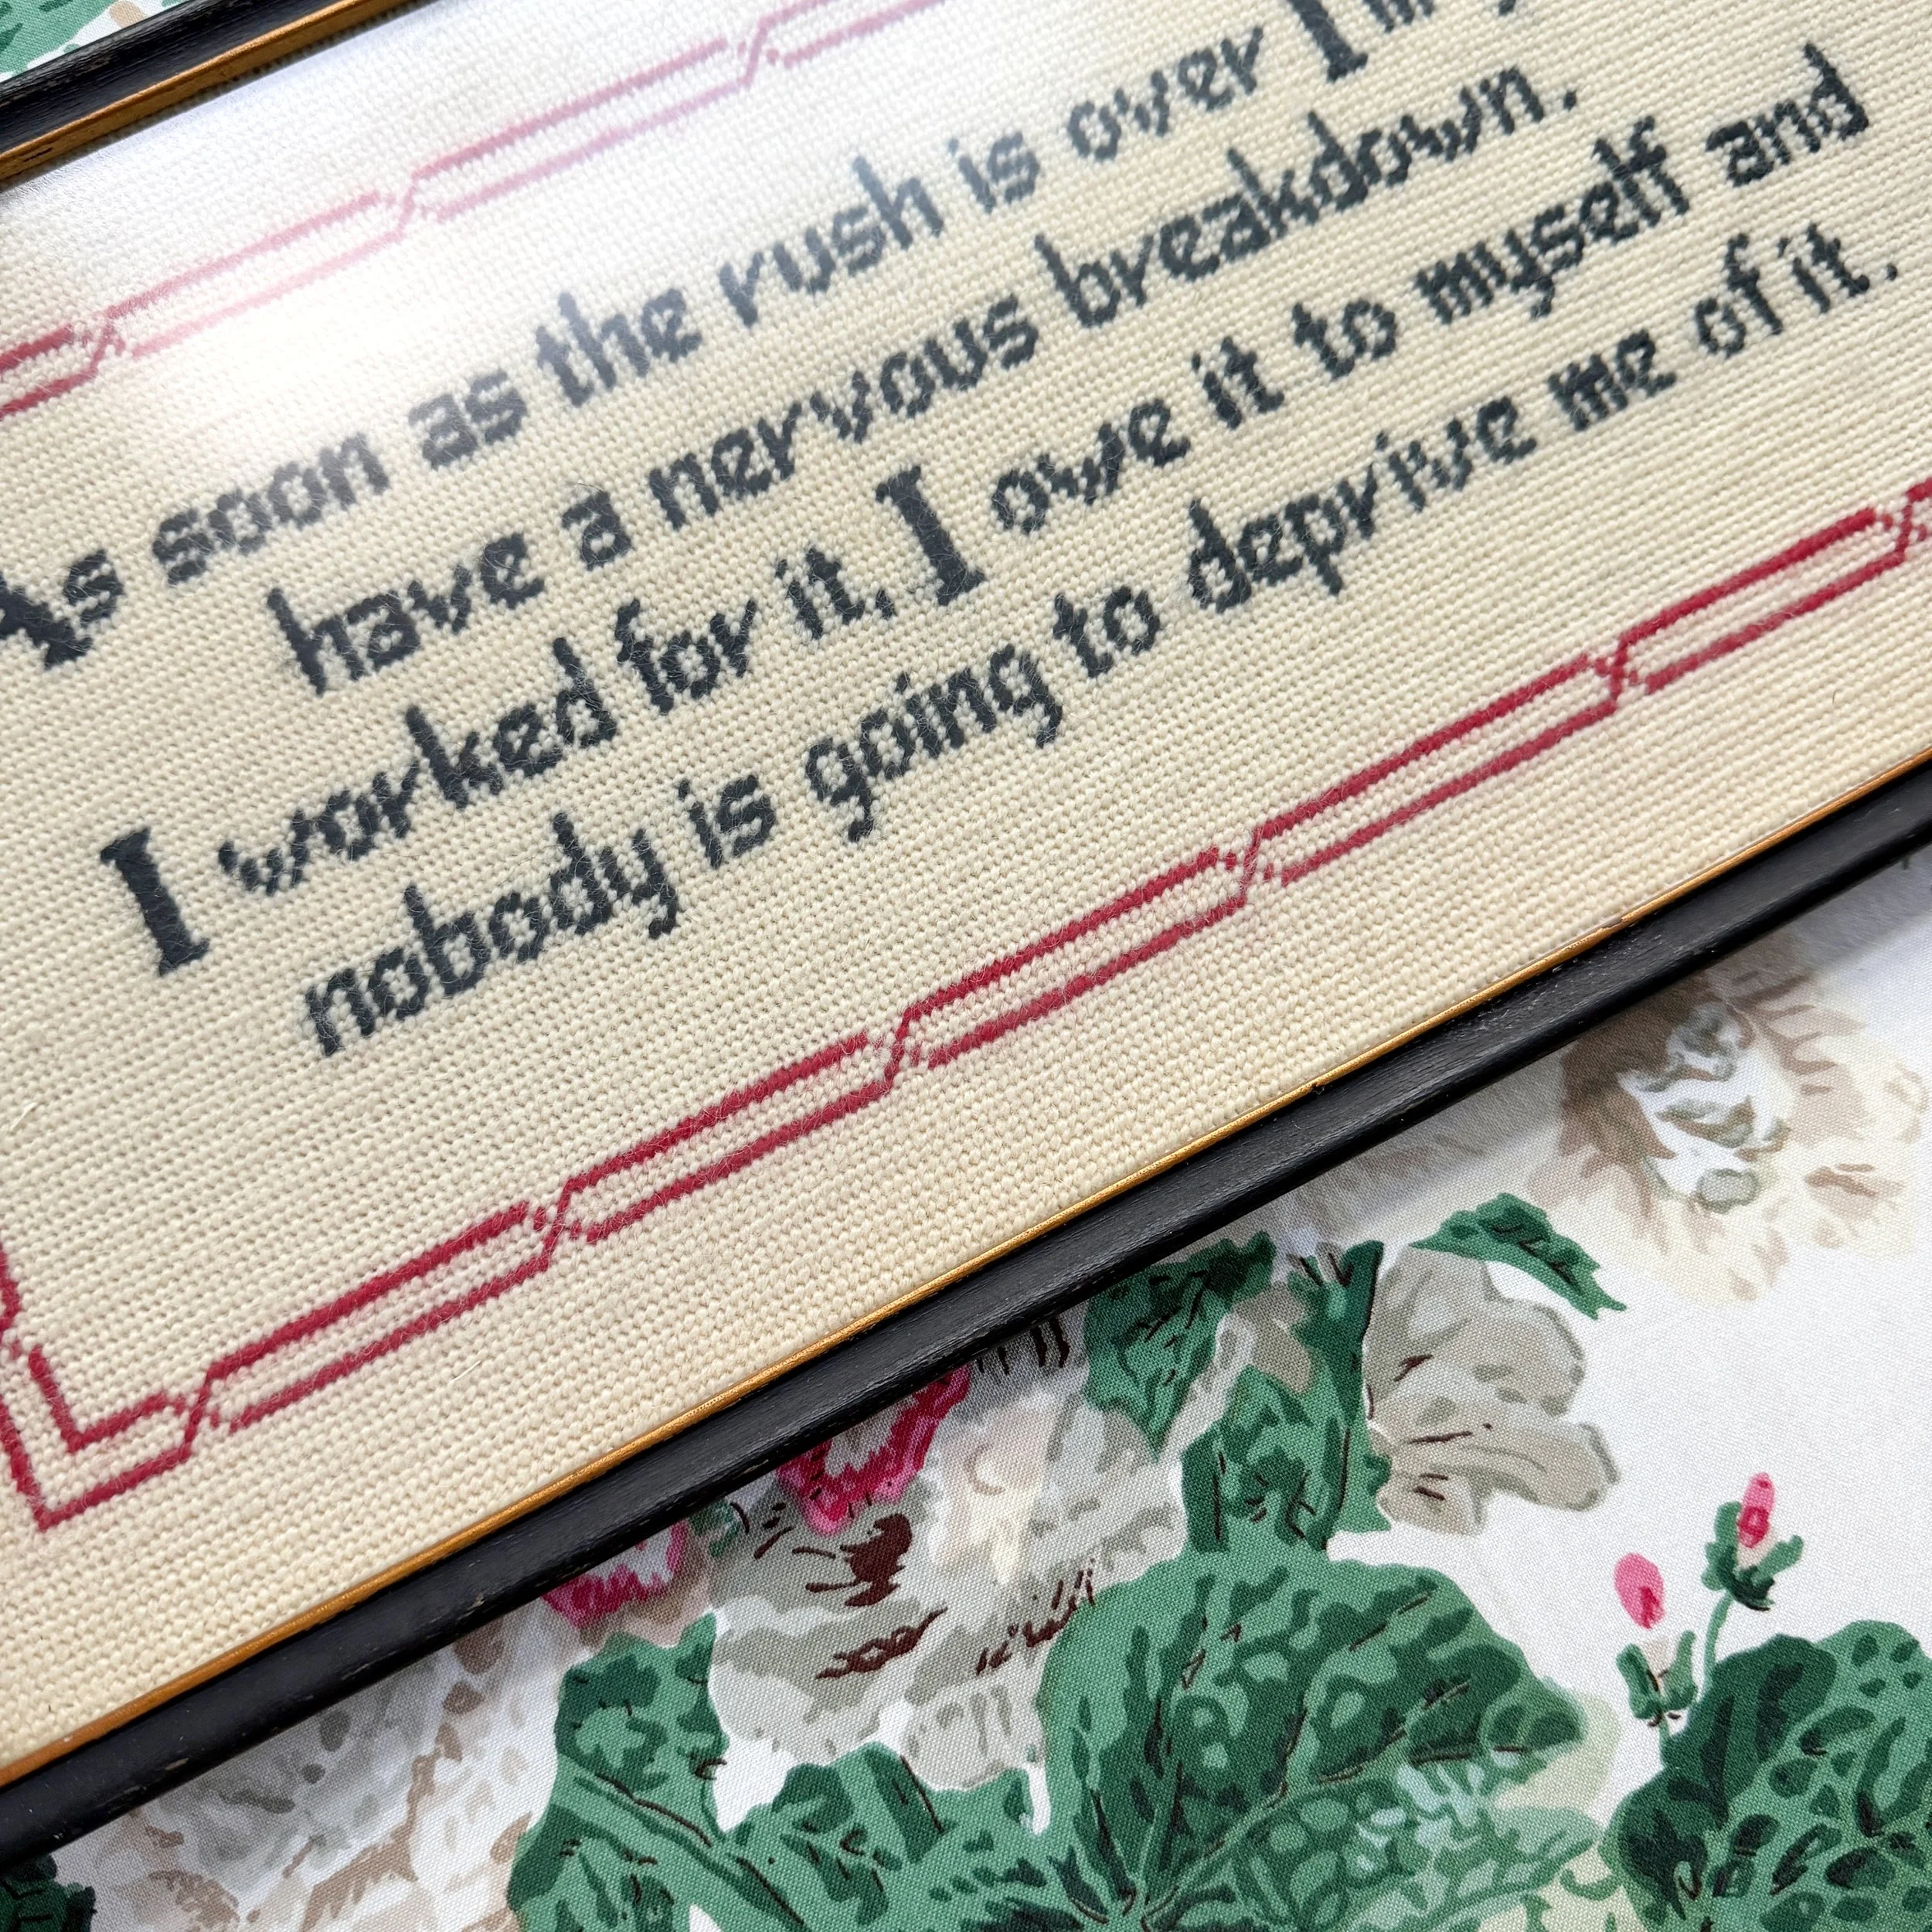 As soon as the rush is over I
have a nervous breakdown.
I worked for it, I owe it to myself and
nobody is going to deprive me of it.